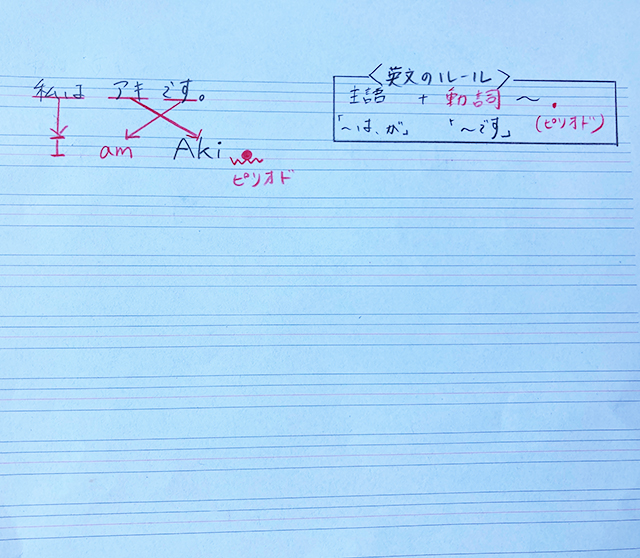 私は アキ です。
I am Aki .
ピリオド
〈英文のルール〉
主語 + 動詞 〜 .
「〜は、が」 「〜です」 (ピリオド)